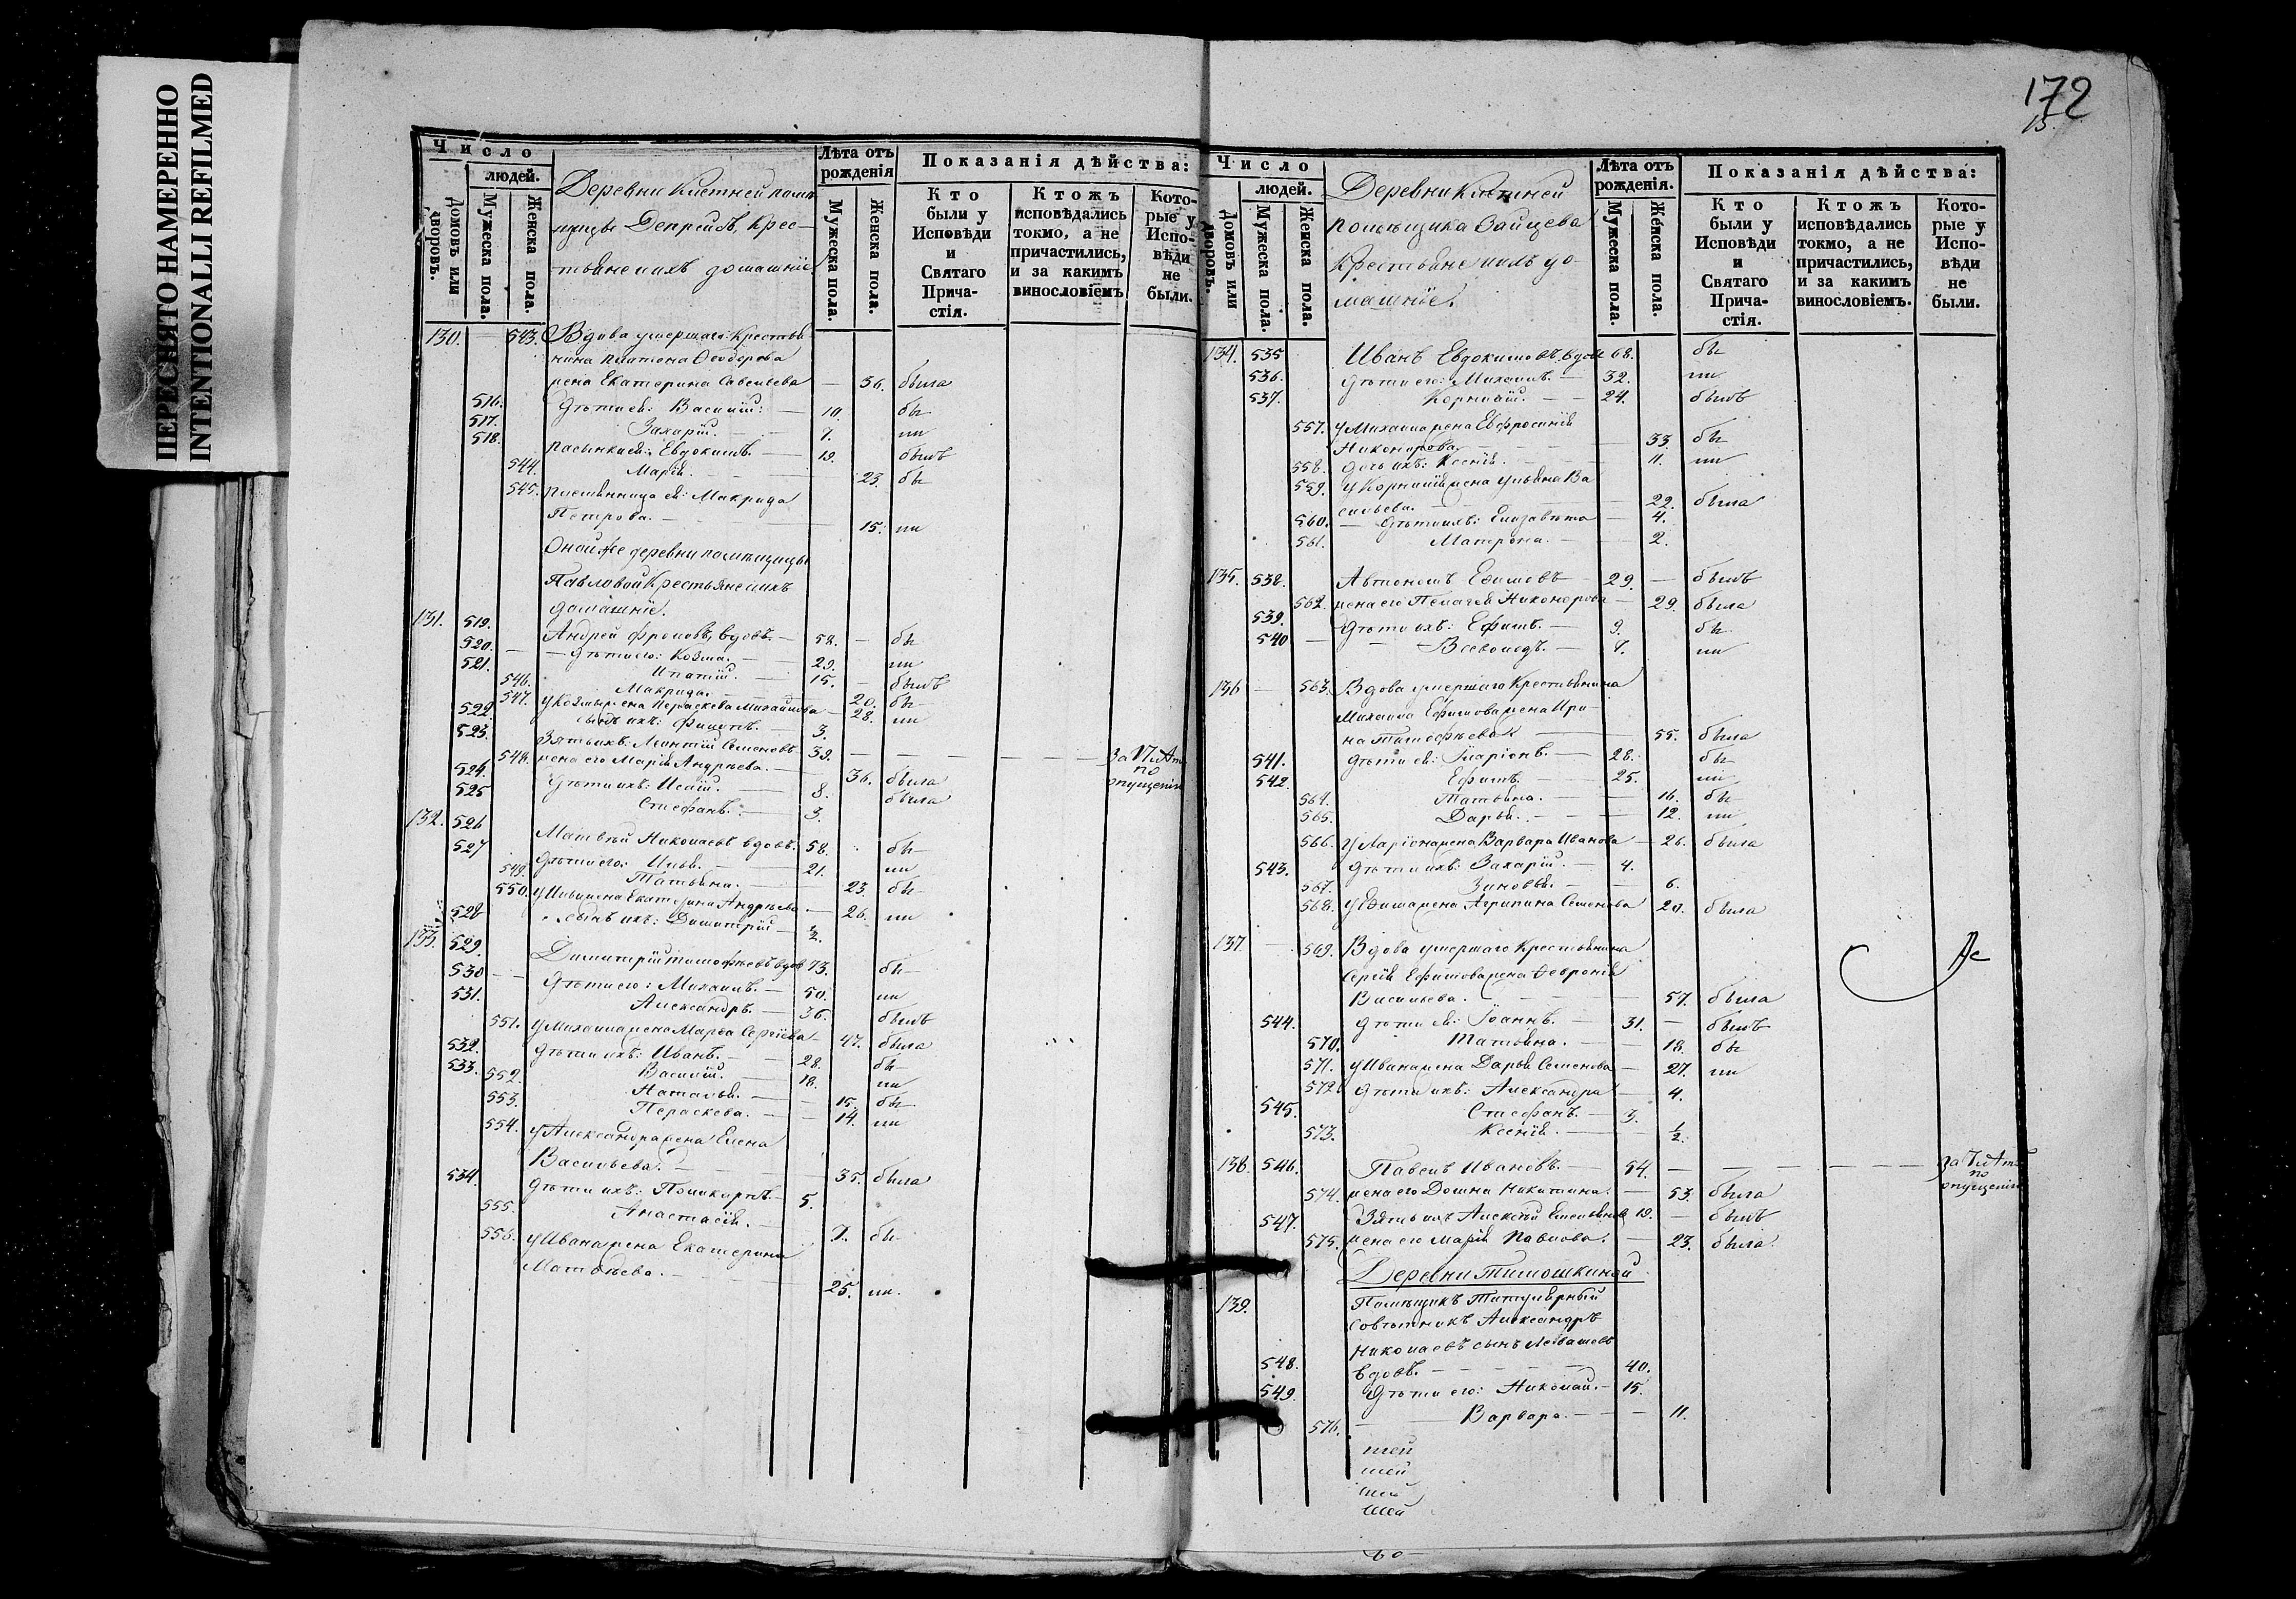 ПЕРЕСНЯТО НАМЕРЕННО
INTENTIONALLI REFILMED
Число
людей.
Домовъ или дворовъ.
Мужеска пола.
Женска пола.
Деревни Кистней поме
щицы крес-
тьяне и ихъ домашніе
Лѣта отъ рожденія
Мужеска пола.
Женска пола.
Показанія дѣйства:
Кто были у Исповѣди и Святаго Прича-стія.
Ктожъ исповѣдались токмо, а не причастились, и за какимъ винословіемъ
Кото-рые у Испо-вѣди не были.
130. 543. Вдова умершаго Крестья-
нина Платона Ѳеодорова
жена Екатерина Савельева — 36. была
516. Дѣти ея: Василій: — 10. бы
517. Захарій. — 7. ли
518. пасынки ея: Евдокимъ. — 19. былъ
544. Марія. — 23. бы
545. племянница ея: Макрида
Петрова. — 15. ли
Оной же деревни помѣщицы
Павловой Крестьяне и ихъ
домашніе.
131. 519. Андрей Фроловъ, вдовъ. — 58. — бы
520. — Дѣти его: Козма. — 29. ли
521. Ипатій. — 15. — былъ
546. Макрида. — 20. бы
547. у Козмы жена Параскева Михайлова — 28. ли
522. сынъ ихъ: Филипъ. — 3.
523. Зять ихъ. Леонтій Семеновъ — 39. — За
по
опущенію
548. жена его Марія Андреева. — 36. была
524. Дѣти ихъ: Исаія. — 8. была
525 Стефанъ. — 3.
132. 526 Матвѣй Николаевъ вдовъ. 58. бы
527 Дѣти его: Илья. — 21. ли
549. Татьяна. — 23. бы
550. у Ильи жена Екатерина Андреева — 26. ли
528 сынъ ихъ: Димитрій — ½.
133. 529. Димитрій Тимофѣевъ вдов 73. бы
530 — Дѣти его: Михаилъ. — 50. ли
531. Александръ. — 36. былъ
551. у Михаила жена Марѳа Сергіева — 47. была
532. Дѣти ихъ: Иванъ. — 28. бы
533. Василій. — 18. ли
552. Наталья. — 15. бы
553. Параскева. — 14. ли
554. у Александра жена Елена
Васильева. — 35. была
534. Дѣти ихъ: Поликарпъ — 5.
555. Анастасія. — 7. бы
556. у Ивана жена Екатерина
Матвѣева. — 25. ли.
172
15.
Число
людей.
Домовъ или дворовъ.
Мужеска пола.
Женска пола.
Деревни Кистней
помѣщика Зайцева
Крестьяне и ихъ до-
машніе.
Лѣта отъ рожденія.
Мужеска пола.
Женска пола.
Показанія дѣйства:
Кто были у Исповѣди и Святаго Прича-стія.
Ктожъ исповѣдались токмо, а не причастились, и за какимъ винословіемъ.
Кото-рые у Испо-вѣди не были.
134. 535 Иванъ Евдокимовъ, вдов 68. бы
536. Дѣти его: Михаилъ. — 32. ли
537. Корнилій. — 24. былъ
557. у Михаила жена Евфросинія
Никонорова. — 33 бы
558. дочь ихъ: Ксенія. — 11. ли
559. у Корнилія жена Ульяна Ва
сильева. — 22. была
560. — Дѣти ихъ: Елизавета — 4.
561. Матрона. — 2.
135. 538. Автономъ Ефимовъ — 29. — былъ
562. жена его Пелагея Никонорова — 29. была
539. Дѣти ихъ: Ефимъ. — 9. бы
540 — Всеволодъ. — 7. ли
136 — 563. Вдова умершаго Крестьянина
Михаила Ефимова жена Ири-
на Тимофѣева — 55. была
541. дѣти ея: Иларіонъ. — 28. бы
542. Ефимъ. — 25. ли
564. Татьяна. — 16. бы
565. Дарья. — 12. ли
566. у Ларіона жена Варвара Иванова — 26. была
543. Дѣти ихъ: Захарій. — 4.
567. Зиновья. — 6.
568. у Ефима жена Агрипина Семенова 20. была
137. — 569. Вдова умершаго Крестьянина
Сергія Ефимова жена Февронія
Васильева. — 57. была
544. дѣти ея: Іоаннъ. — 31. — былъ
570. Татьяна. — 18. бы
571. у Ивана жена Дарья Семенова — 27. ли
572 Дѣти ихъ: Александра — 4.
545. Стефанъ. — 3.
573. Ксенія. — ½.
138. 546. Павелъ Ивановъ. — 54. — за
по
опущенію
574. жена его Домна Никитина. — 53. была
547. Зять ихъ Алексѣй Емельянов 19. — былъ
575. жена его Марія Павлова. — 23. была.
Деревни Тимошкиной
139. Помѣщикъ Титулярный
Совѣтникъ Александръ
Николаевъ сынъ Левашевъ
548. вдовъ. — 40.
549. Дѣти его: Николай. — 15.
576. — Варвара. — 11.